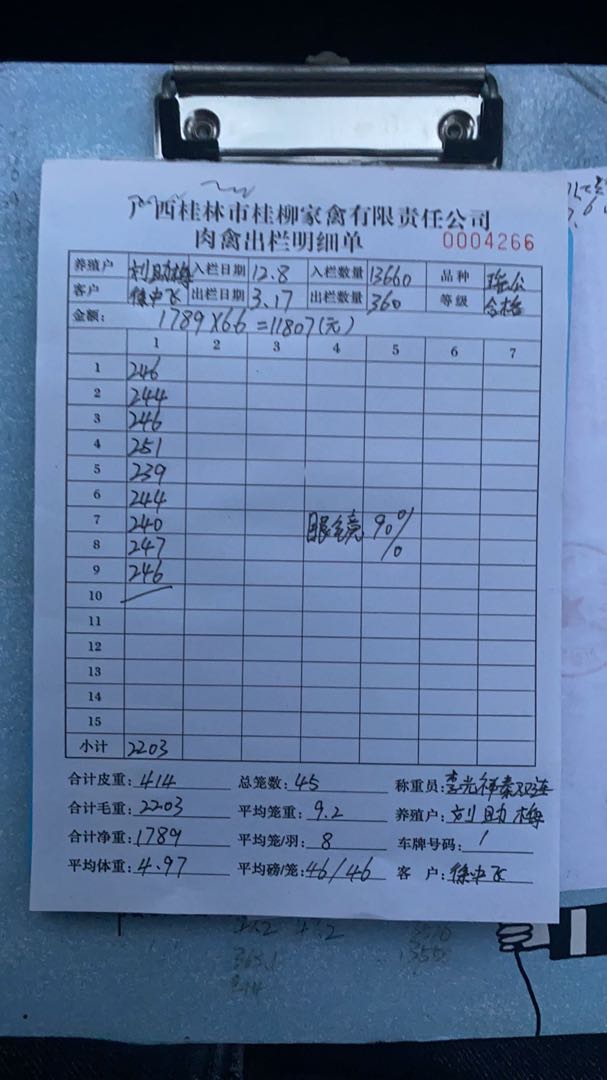 广西桂林市桂柳家禽有限责任公司
肉禽出栏明细单 0004266
养殖户 刘助梅 入栏日期 12.8 入栏数量 13660 品种
客户 徐中飞 出栏日期 3.17 出栏数量 360 等级 合格
金额: 1789×6.6=11807(元)
1 2 3 4 5 6 7
1 246
2 244
3 246
4 251
5 239
6 244
7 240 眼镜 90%
8 247
9 246
10
11
12
13
14
15
小计 2203
合计皮重: 414 总笼数: 45 称重员: 李光祥
合计毛重: 2203 平均笼重: 9.2 养殖户: 刘助梅
合计净重: 1789 平均笼/羽: 8 车牌号码: 1
平均体重: 4.97 平均磅/笼: 46/46 客 户: 徐中飞